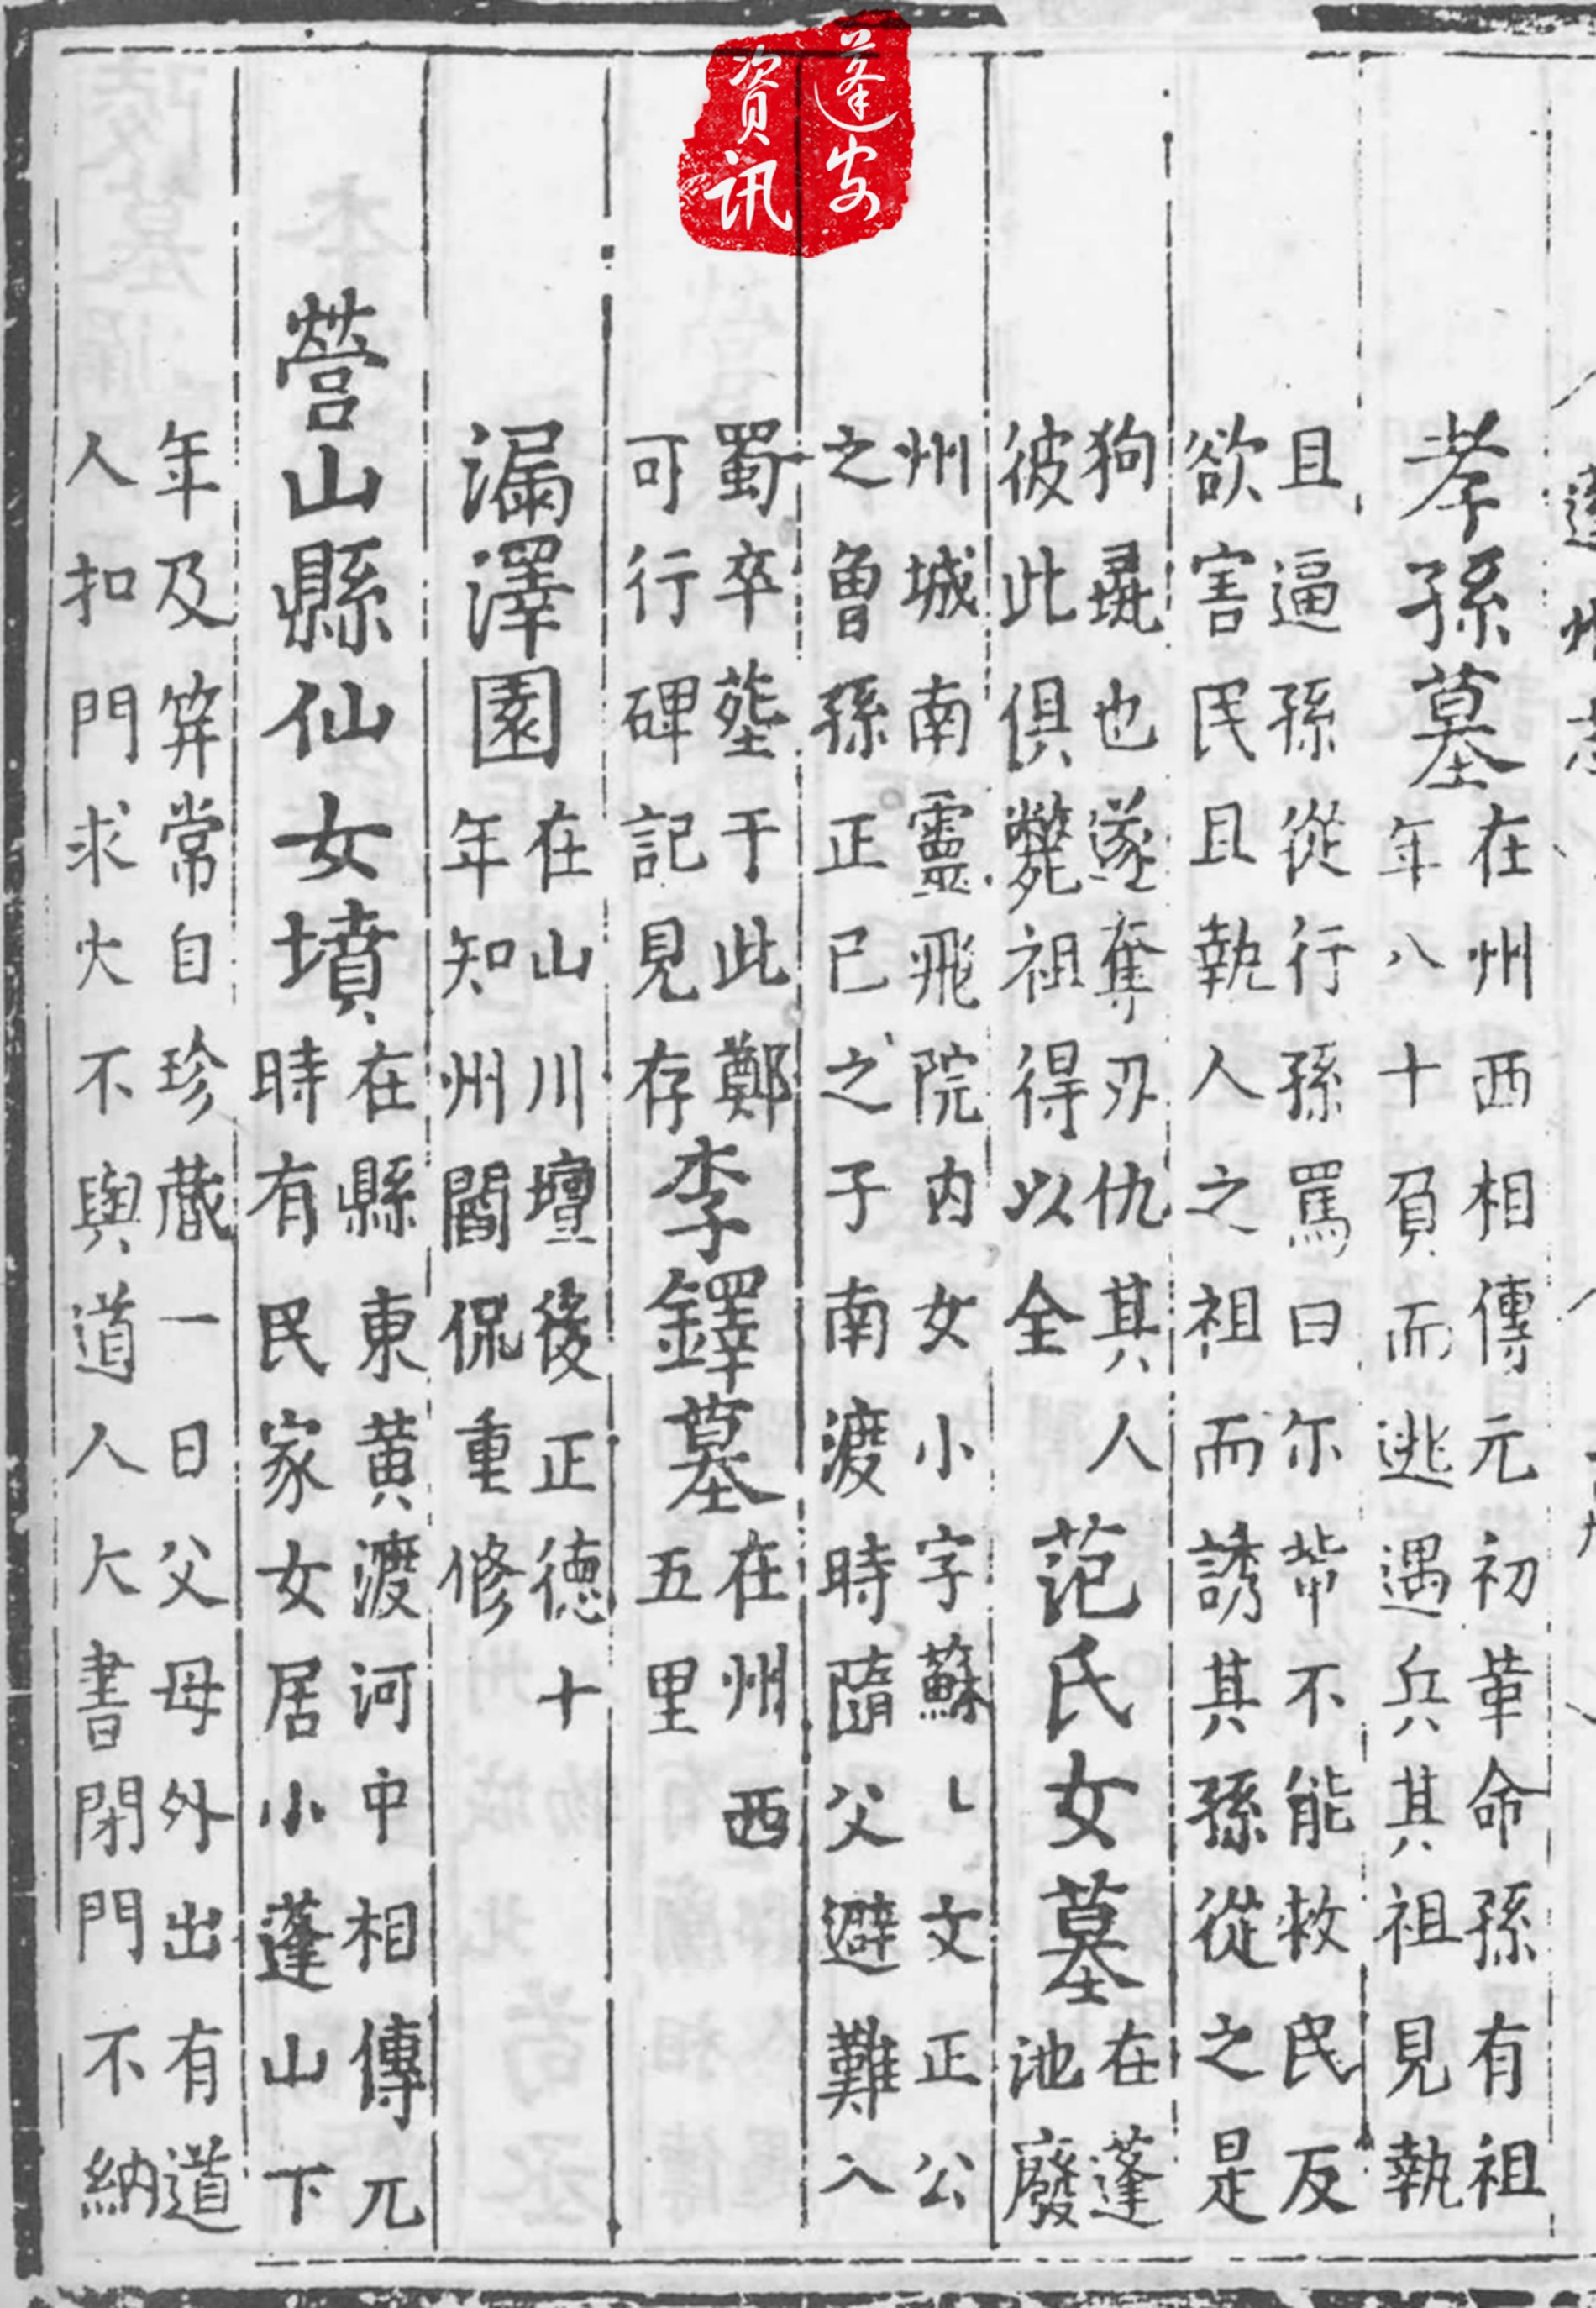 蓬安
資訊
孝孫墓
在州西相傳元初革命孫有祖
年八十負而逃遇兵其祖見執
且逼孫從行孫罵曰尓帶不能救民反
欲害民且執人之祖而誘其孫從之是
狗彘也遂奪刃仇其人
彼此俱斃祖得以全
范氏女墓
在蓬
池廢
州城南靈飛院內女小字蘇乚文正公
之曾孫正己之子南渡時隨父避難入
蜀卒塟于此鄭
可行碑記見存
李鐸墓
在州西
五里
漏澤園
在山川壇後正德十
年知州閻侃重修
營山縣仙女墳
在縣東黃渡河中相傳元
時有民家女居小蓬山下
年及笄常自珍蔵一日父母外出有道
人扣門求火不與道人大書閉門不納